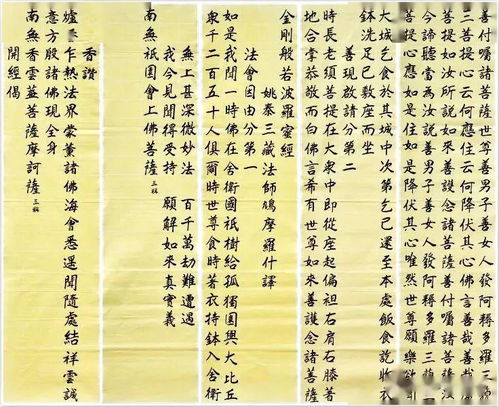 香讚
爐香乍熱法界蒙薰諸佛海會悉遥聞隨處結祥雲誠
意方殷諸佛現全身
南無香雲蓋菩薩摩訶薩 三稱
開經偈
無上甚深微妙法 百千萬劫難遭遇
我今見聞得受持 願解如來真實義
南無祇園會上佛菩薩 三稱
金剛般若波羅蜜經
姚秦三藏法師鳩摩羅什譯
法會因由分第一
如是我聞一時佛在舍衛國祇樹給孤獨園與大比丘
衆千二百五十人俱爾時世尊食時著衣持鉢入舍衛
大城乞食於其城中次第乞已還至本處飯食訖收衣
鉢洗足已敷座而坐
善現啟請分第二
時長老須菩提在大衆中即從座起偏袒右肩右膝著
地合掌恭敬而白佛言希有世尊如來善護念諸菩薩
善付囑諸菩薩世尊善男子善女人發阿耨多羅三
三菩提心云何應住云何降伏其心佛言善哉善哉
菩提如汝所說如來善護念諸菩薩善付囑諸菩薩汝
今諦聽當為汝說善男子善女人發阿耨多羅三藐
菩提心應如是住如是降伏其心唯然世尊願樂欲